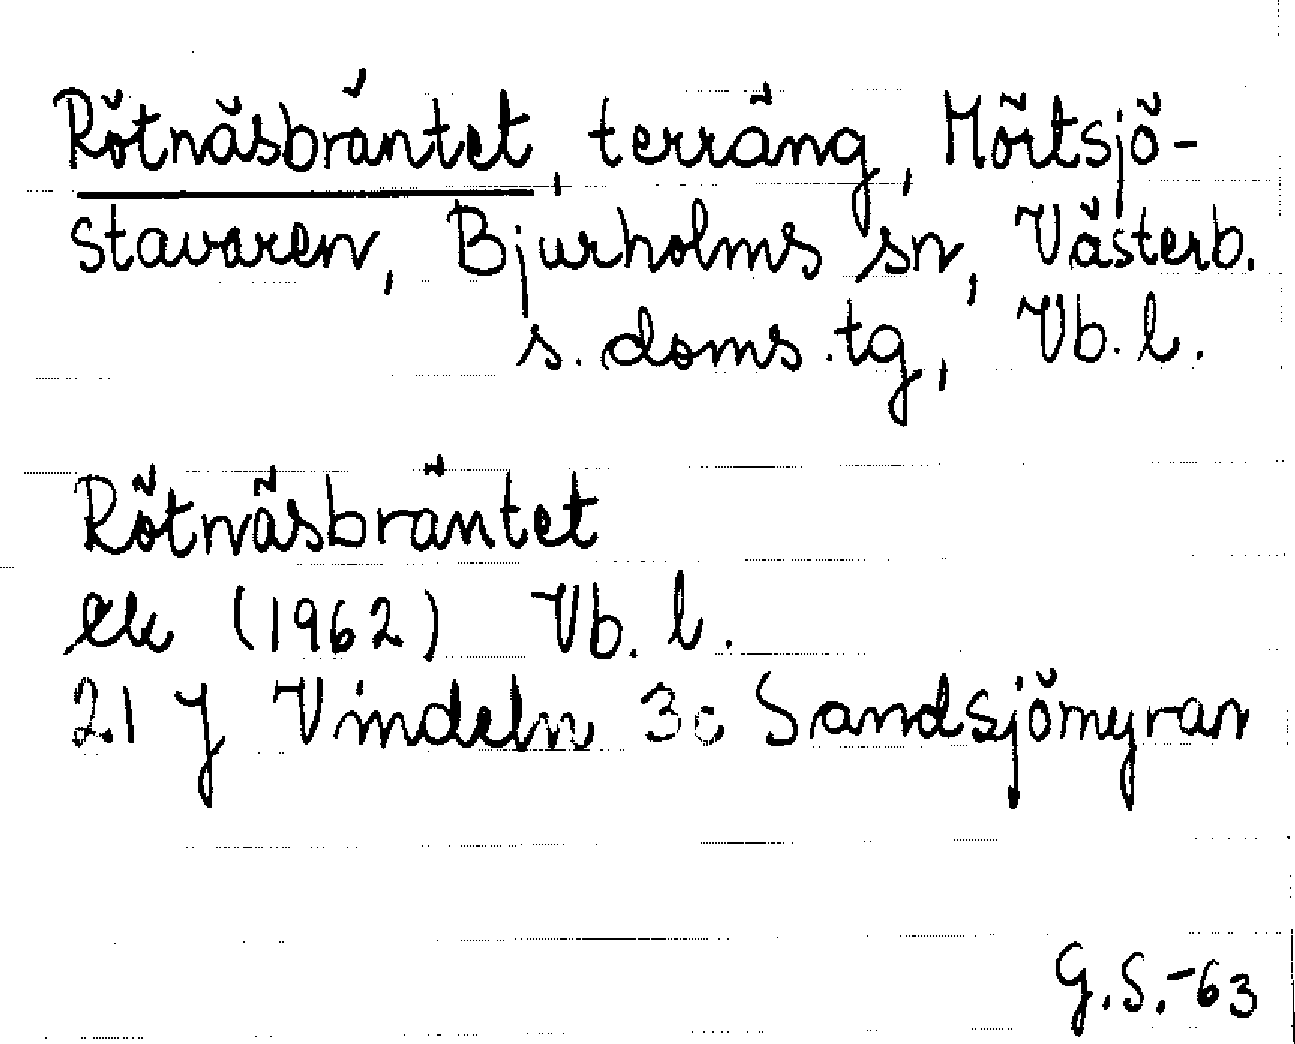 Rötnäsbräntet, terräng, Mörtsjö-
stavaren, Bjurholms sn, Västerb.
s. doms.tg, Vb. l.
Rötnäsbräntet
ek (1962) Vb. l.
21 J Vindeln 3c Sandsjömyran
G.S.-63